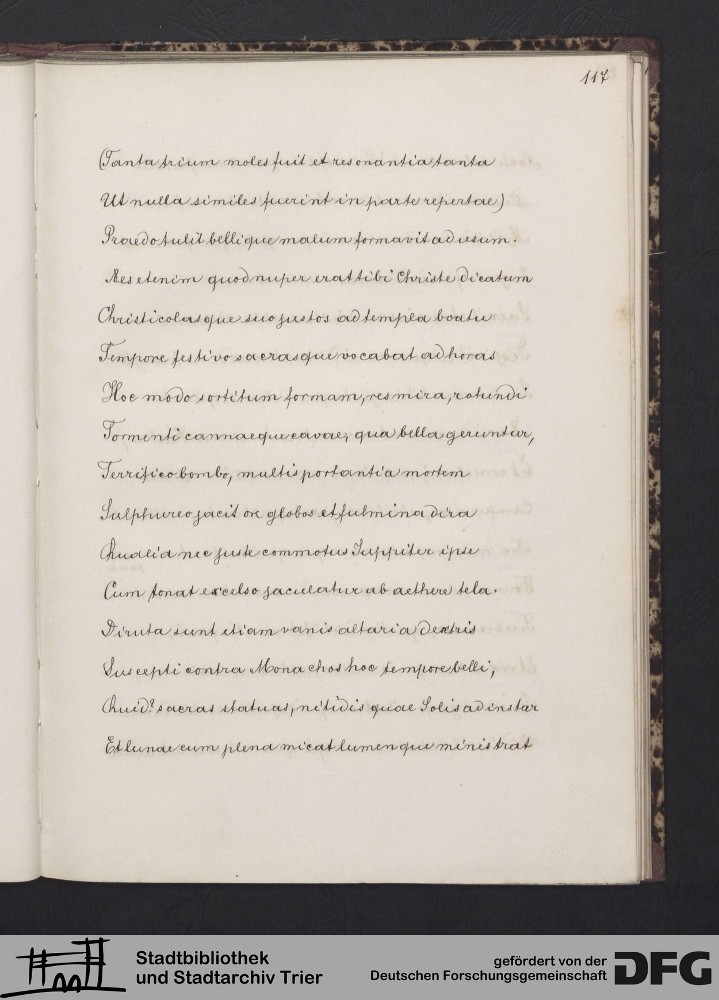 117
(Tanta trium moles fuit et resonantia tanta
Ut nulla similes fuerint in parte repertae)
Praedo tulit bellique malum formavit ad usum.
Aes etenim quod nuper erat tibi Christe dicatum
Christicolasque suo justos ad templa boatu
Tempore festivo sacrasque vocabat ad horas
Hoc modo sortitum formam, res mira, rotundi
Tormenti cannaeque cavae, qua bella geruntur,
Terrifico bombo, multis portantia mortem
Sulphureo jacit ore globos et fulmina dira
Qualia nec juste commotus Juppiter ipse
Cum tonat excelso jaculatur ab aethere tela.
Diruta sunt etiam vanis altaria dextris
Suscepti contra Monachos hoc tempore belli,
Quid? sacras statuas, nitidis quae Solis ad instar
Et lunae cum plena micat lumenque ministrat
Stadtbibliothek
und Stadtarchiv Trier
gefördert von der
Deutschen Forschungsgemeinschaft
DFG